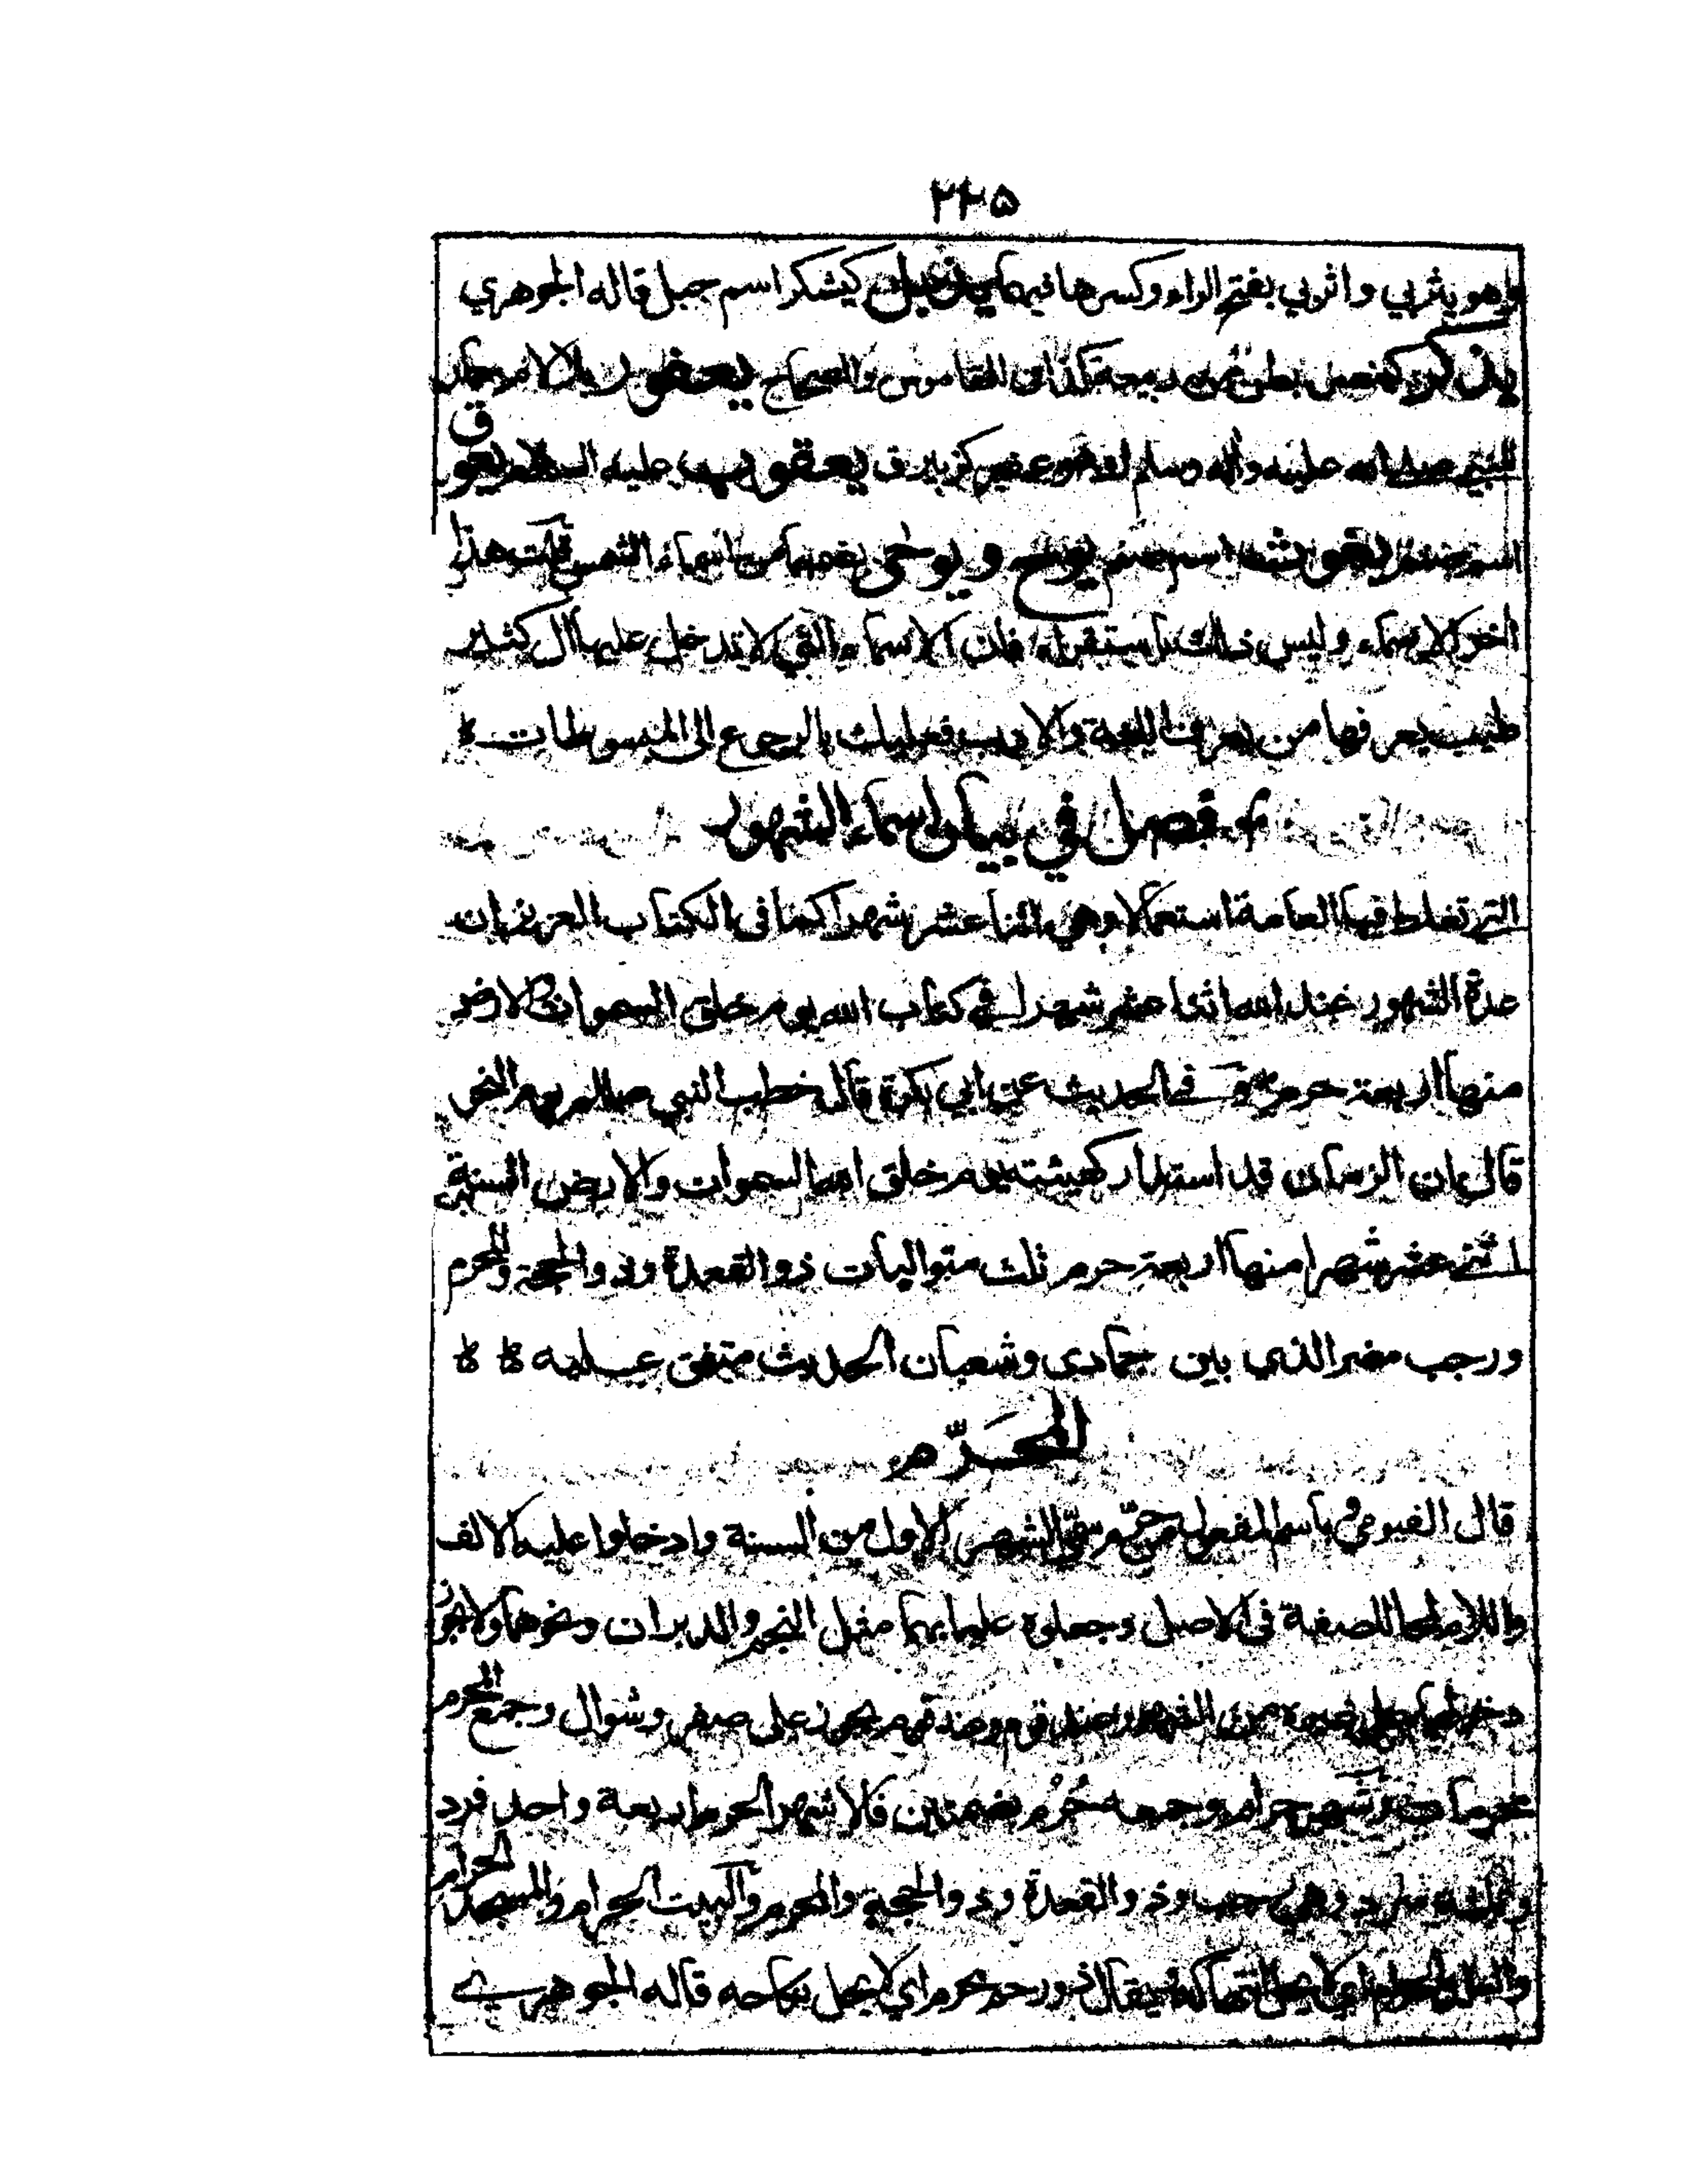 ٢٢٥
وهو يثربي واثربي بفتح الراء وكسرها فيهما كيشكر اسم جبل قاله الجوهري
يذكر كينصر بطن من ربيعة كذا في القاموس والصحاح يعفور بلا لام حمار
للنبي صلى الله عليه وآله وسلم او هو عفير كزبير ق يعقوب عليه السلام يعوق
اسم صنم يغوث اسم صنم يوح ويوحى بضمهما من اسماء الشمس قلت هذا
اخر الاسماء وليس ذلك باستقراء فان الاسماء التي لا تدخل عليها ال كثير
طيب يعرفها من يعرف اللغة والادب فعليك بالرجوع الى المبسوطات ه
فصل في بيان اسماء الشهور
التي تغلط فيها العامة استعمالا وهي اثنا عشر شهرا كما في الكتاب العزيز ان
عدة الشهور عند الله اثنا عشر شهرا في كتاب الله يوم خلق السموات والارض
منها اربعة حرم وفي الحديث عن ابي بكرة قال خطب النبي صللم يوم النحر
قال ان الزمان قد استدار كهيئته يوم خلق الله السموات والارض السنة
اثني عشر شهرا منها اربعة حرم ثلث متواليات ذو القعدة وذو الحجة والمحرم
ورجب مضر الذي بين جمادى وشعبان الحديث متفق عليه ه ه
المحرّم
قال الفيومي باسم المفعول من حرّم سمّي الشهر الاول من السنة وادخلوا عليه الالف
واللام لمحا للصفة في الاصل وجعلوه علما بهما مثل النجم والدبران ونحوهما ولا يجوز
دخولهما على غيره من الشهور عند قوم وعند قوم يجوز على صفر وشوال وجمع المحرم
محرمات وشهر حرام وجمعه حُرُم بضمتين فالاشهر الحرم اربعة واحد فرد
وثلثة سرد وهي رجب وذو القعدة وذو الحجة والمحرم والبيت الحرام والمسجد الحرام
والبلد الحرام اي لا يحل انتهاكه يقال ذو رحم محرم اي لا يحل نكاحه قاله الجوهري